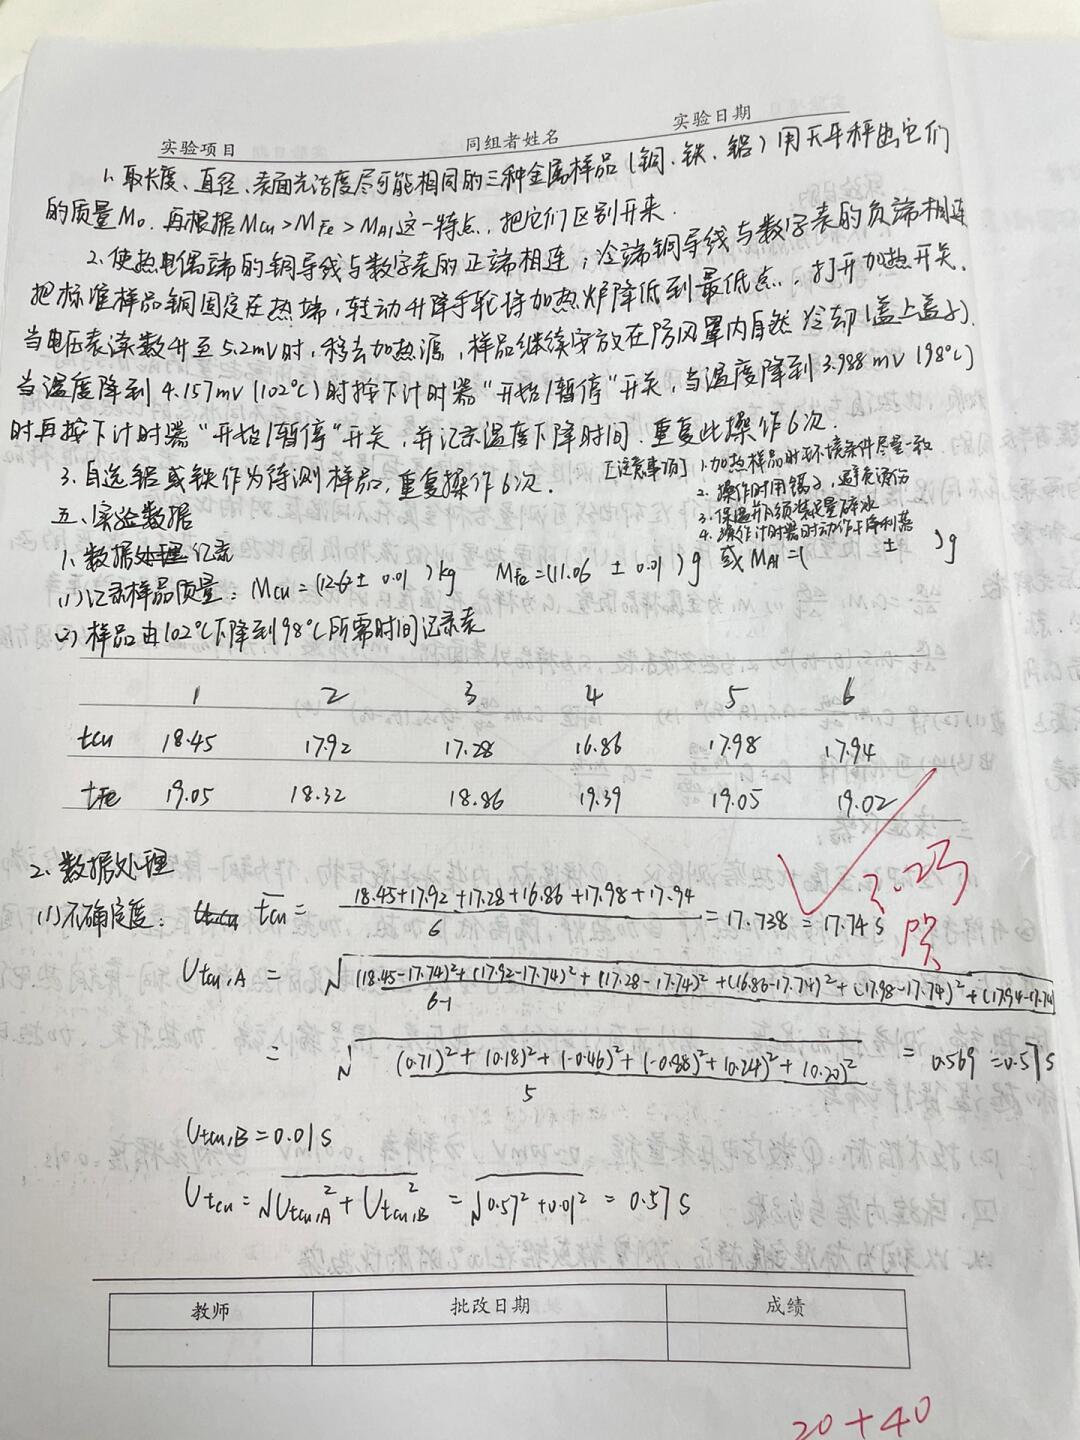 实验项目 同组者姓名 实验日期
1. 取长度、直径、表面光洁度尽可能相同的三种金属样品(铜、铁、铝)用天平秤出它们
的质量M₀. 再根据Mcu>MFe>MAl这一特点, 把它们区别开来.
2. 使热电偶端的铜导线与数字表的正端相连; 冷端铜导线与数字表的负端相连
把标准样品铜固定在热端, 转动升降手轮将加热炉降低到最低点. 打开加热开关.
当电压表读数升至5.2mV时, 移去加热源, 样品继续安放在防风罩内自然冷却(盖上盖子).
当温度降到4.157mV(102℃)时按下计时器“开始/暂停”开关, 当温度降到3.988mV(98℃)
时再按下计时器“开始/暂停”开关, 并记录温度下降时间. 重复此操作6次.
3. 自选铝或铁作为待测样品, 重复操作6次.
[注意事项] 1. 加热样品时环境条件尽量一致
2. 操作时用镊子, 避免烫伤
3. 保温井必须装足量碎冰
4. 操作计时器时动作干净利落
五、实验数据
1. 数据记录
(1) 记录样品质量: Mcu=(12.62±0.01)kg MFe=(11.06±0.01)g 或MAl=( ± )g
(2) 样品由102℃下降到98℃所需时间记录表
1 2 3 4 5 6
tcu 18.45 17.92 17.28 16.86 17.98 17.94
tFe 19.05 18.32 18.86 19.39 19.05 19.02
2. 数据处理
(1) 不确定度: t̄cu = (18.45+17.92+17.28+16.86+17.98+17.94)/6 = 17.738 = 17.74s
Utcu,A = √((18.45-17.74)²+(17.92-17.74)²+(17.28-17.74)²+(16.86-17.74)²+(17.98-17.74)²+(17.94-17.74
6-1
= √(((0.71)²+(0.18)²+(-0.46)²+(-0.88)²+(0.24)²+(0.20)²)/5) = 0.569 = 0.57s
Utcu,B = 0.01s
Utcu = √(Utcu,A²+Utcu,B²) = √(0.57²+0.01²) = 0.57s
教师 批改日期 成绩
20+40